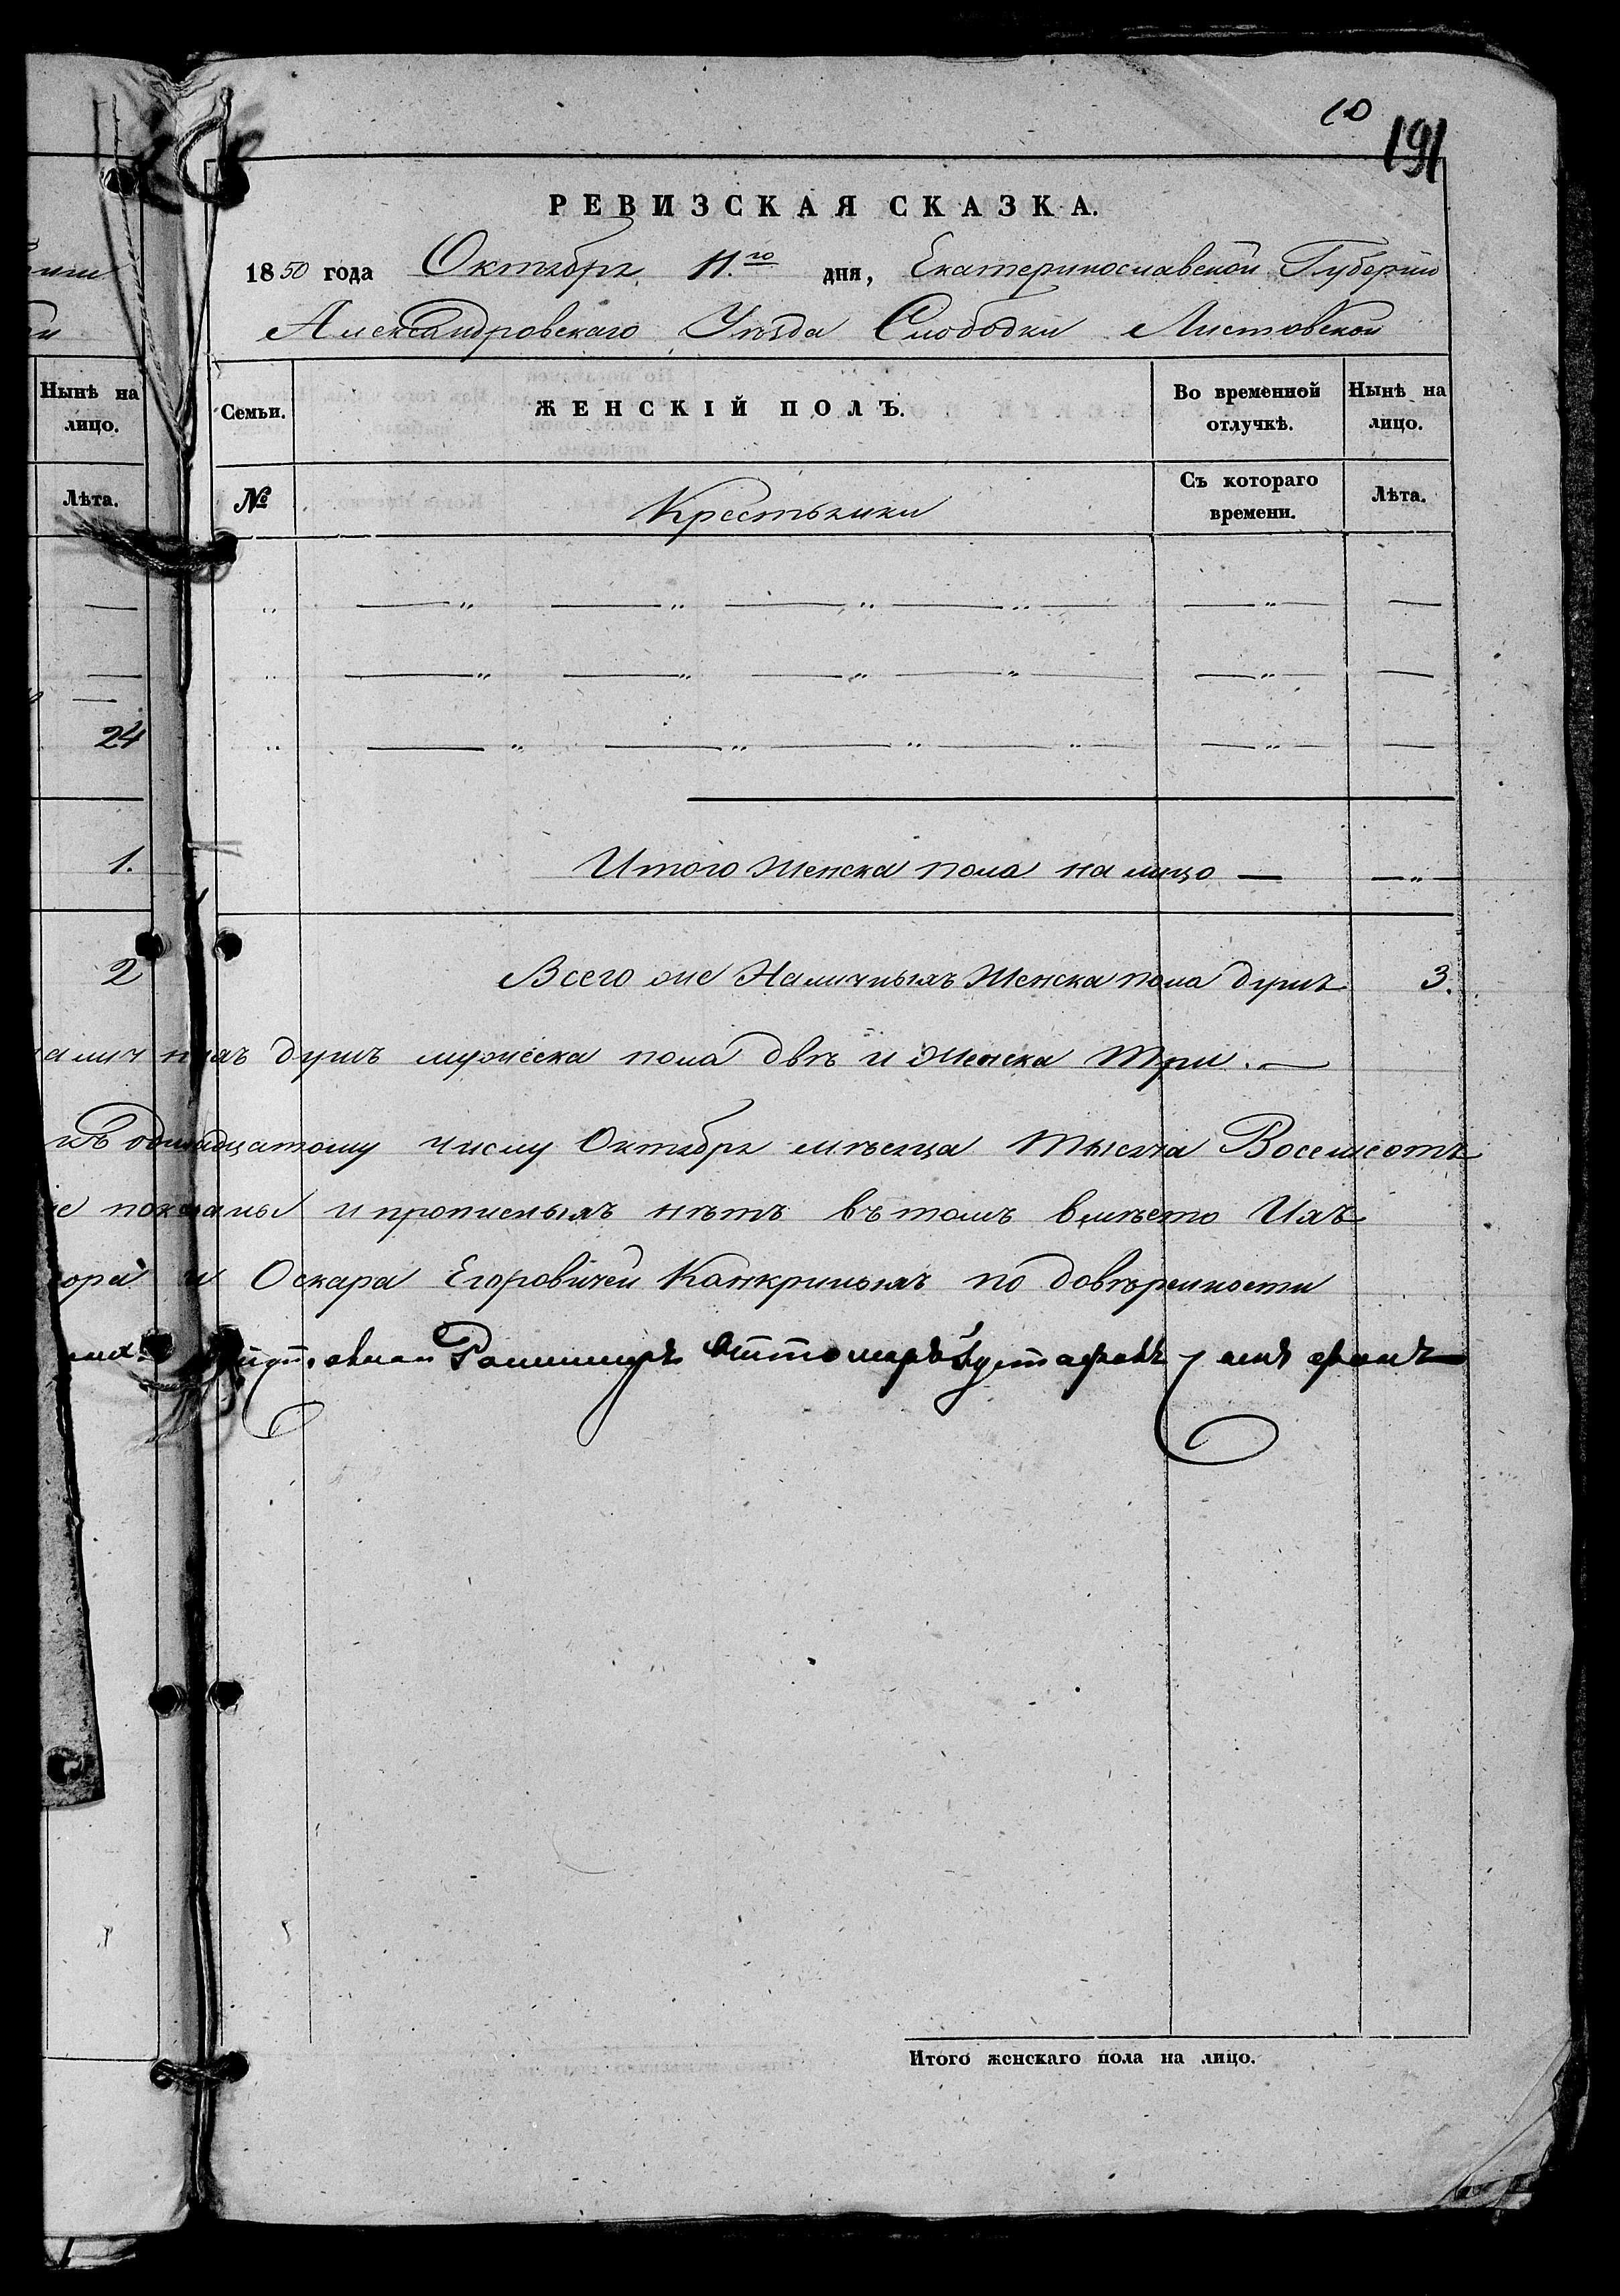 10
191
РЕВИЗСКАЯ СКАЗКА.
1850 года Октября 11.го дня, Екатеринославской Губерніи
Александровскаго Уѣзда Слободки Листовской
Нынѣ на лицо.
Лѣта.
24
1.
2
Семьи.
ЖЕНСКІЙ ПОЛЪ.
Во временной отлучкѣ.
Нынѣ на лицо.
№
Крестьянки
Съ котораго времени.
Лѣта.
Итого женска пола на лицо — — „ —
Всего же Наличныхъ Женска пола душъ 3.
душъ мужеска пола двѣ и Женска три. —
числу Октября мѣсяца тысяча Восемсотъ
и прописныхъ нѣтъ въ томъ вмѣсто Ихъ
и Оскара Егоровичей Канкриныхъ по довѣренности
Итого женскаго пола на лицо.